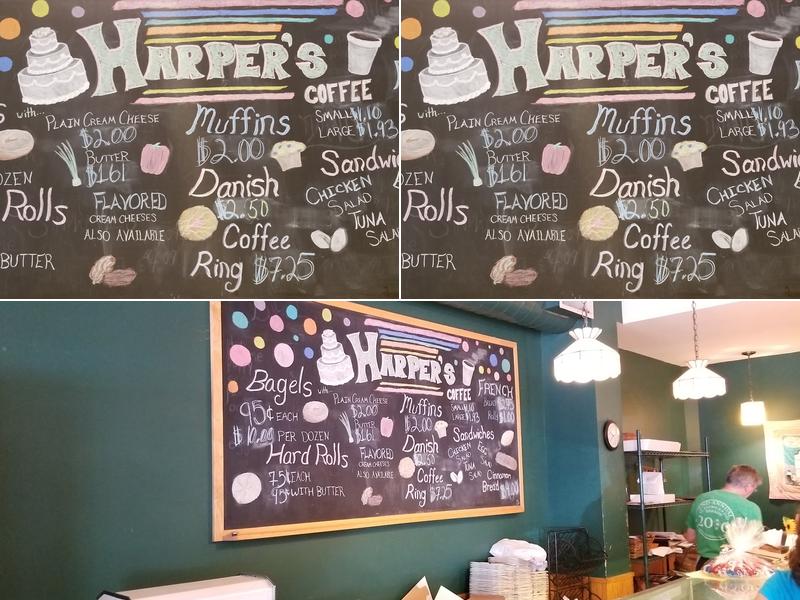 HARPER'S
S with...
PLAIN CREAM CHEESE
$2.00
BUTTER
$1.61
FLAVORED
CREAM CHEESES
ALSO AVAILABLE
OZEN
Rolls
BUTTER
Muffins
$2.00
Danish
$2.50
Coffee
Ring $7.25
COFFEE
SMALL $1.10
LARGE $1.93
Sandwic
CHICKEN
SALAD
TUNA
SALA
HARPER'S
with...
PLAIN CREAM CHEESE
$2.00
BUTTER
$1.61
FLAVORED
CREAM CHEESES
ALSO AVAILABLE
OZEN
Rolls
BUTTER
Muffins
$2.00
Danish
$2.50
Coffee
Ring $7.25
COFFEE
SMALL $1.10
LARGE $1.93
Sandwi
CHICKEN
SALAD
TUNA
SALA
HARPER'S
Bagels with...
95¢ EACH
PER DOZEN
Hard Rolls
75¢ EACH
95¢ WITH BUTTER
PLAIN CREAM CHEESE
$2.00
BUTTER
$1.61
FLAVORED
CREAM CHEESES
ALSO AVAILABLE
Muffins
$2.00
Danish
$2.50
Coffee
Ring $7.25
COFFEE
SMALL $1.10
LARGE $1.93
FRENCH
Sandwiches
CHICKEN
SALAD
EGG
SALAD
TUNA
SALAD
Cinnamon
Bread